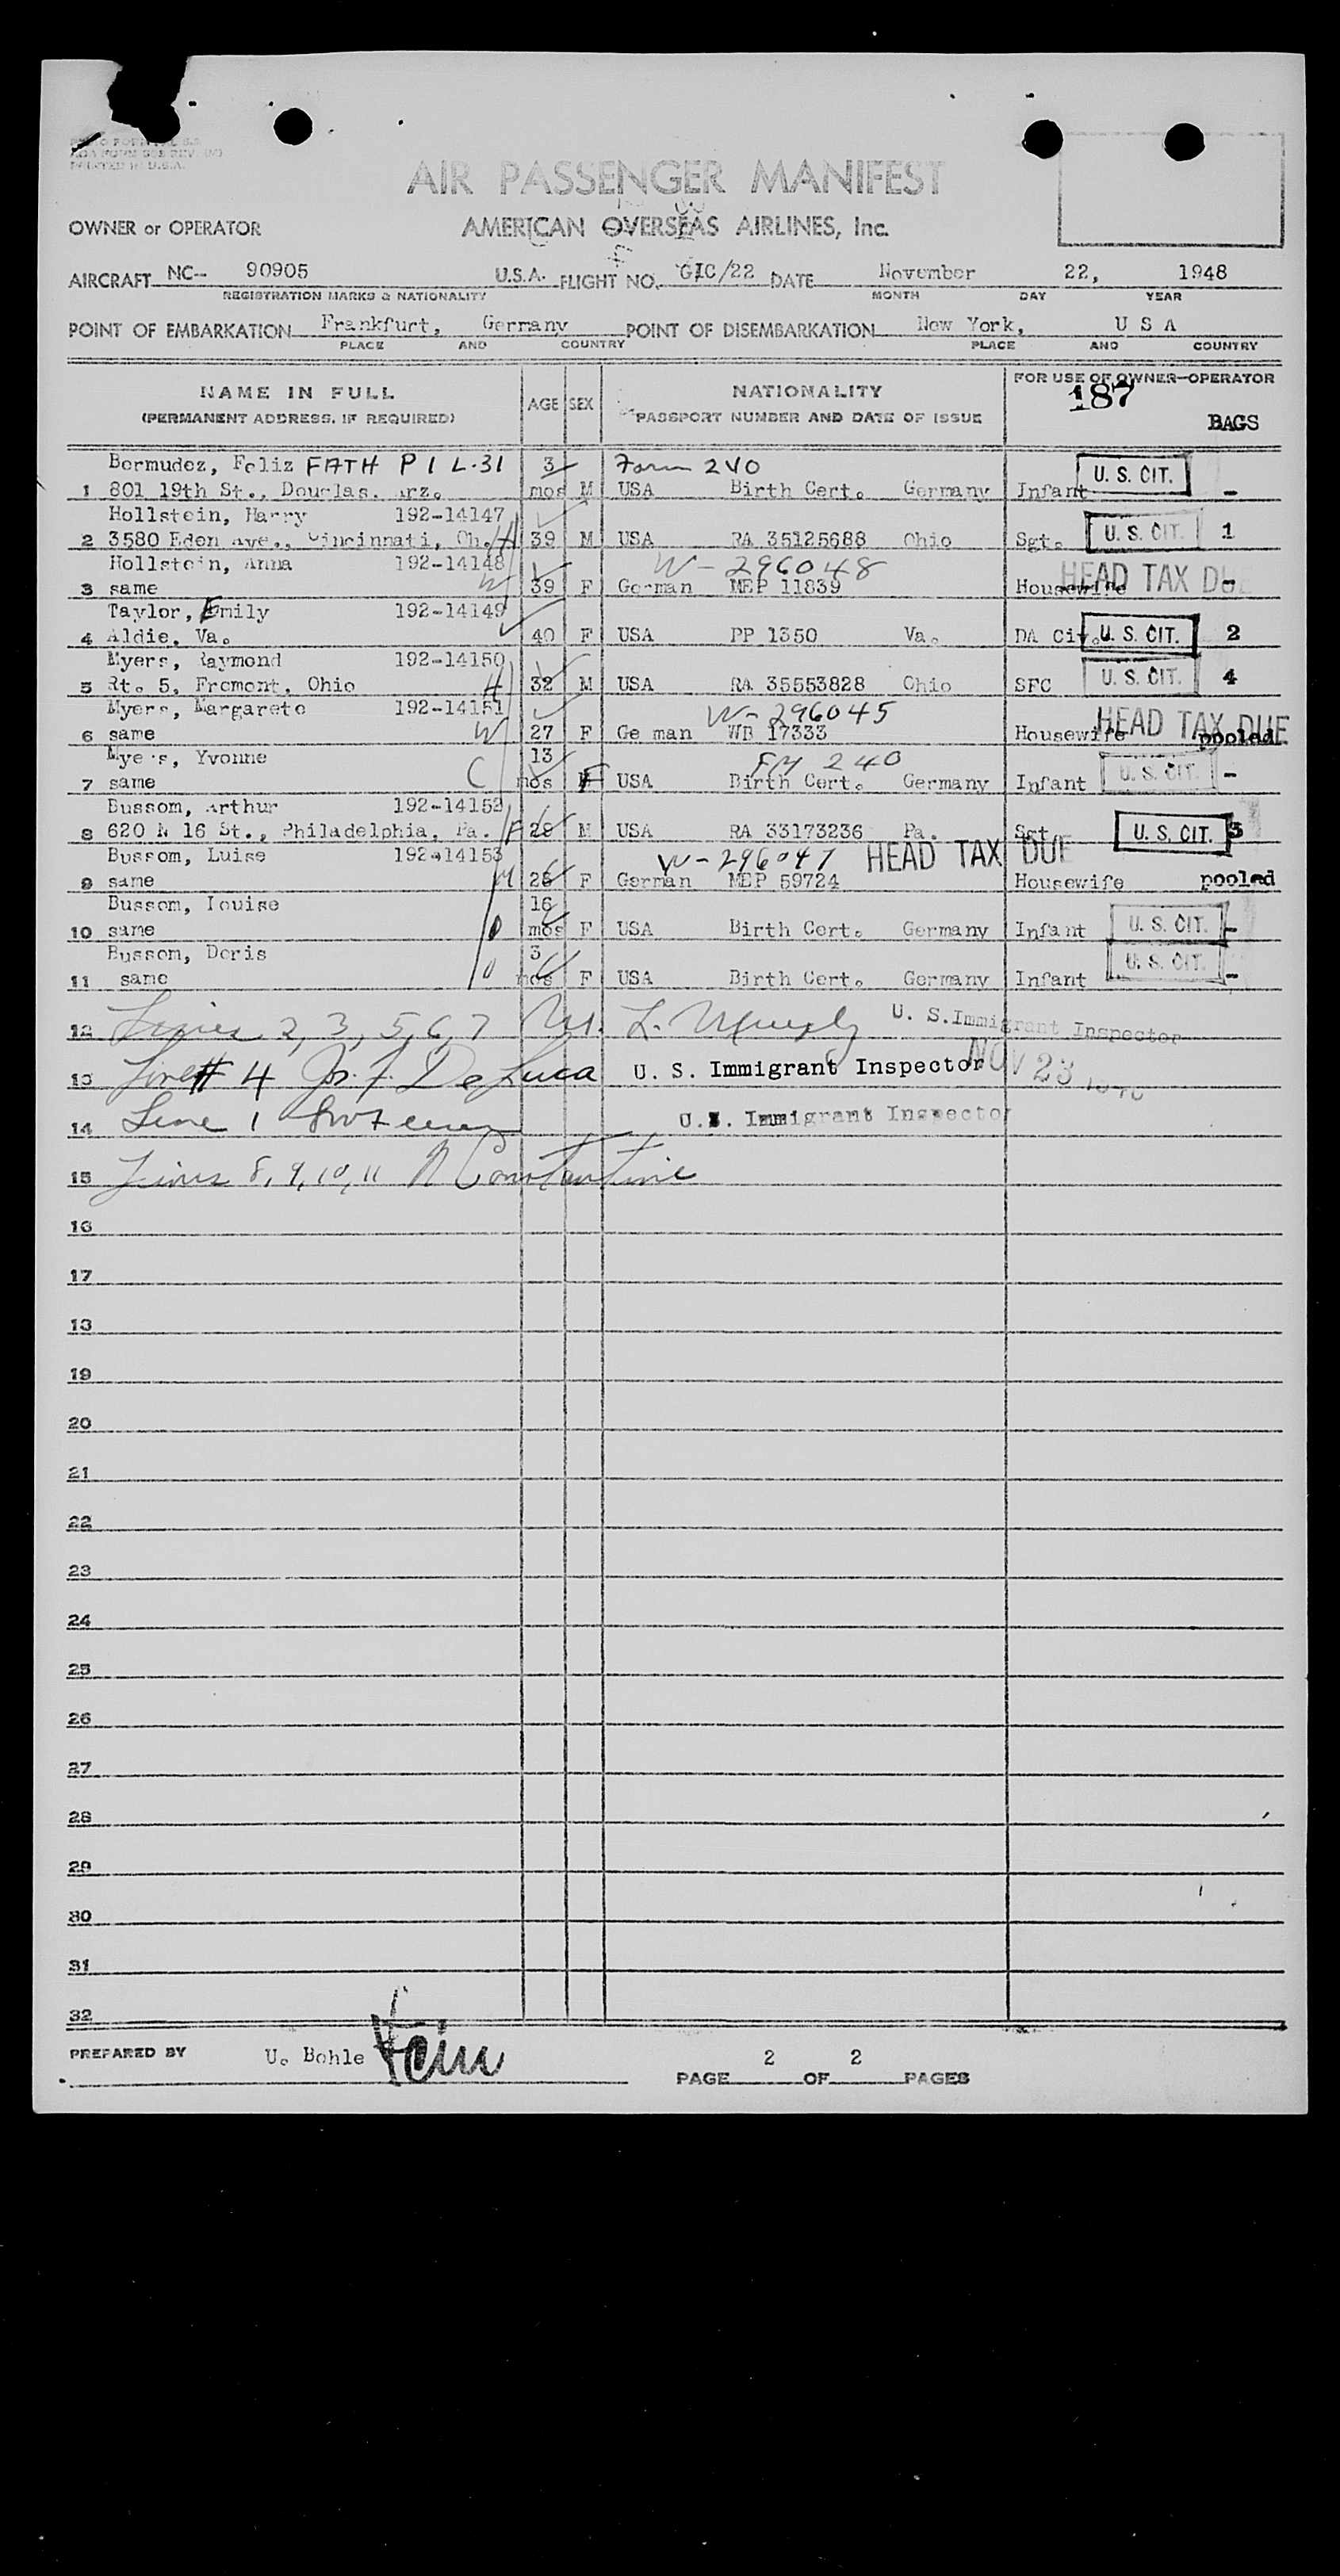 PRINTED IN U.S.A.
AIR PASSENGER MANIFEST
OWNER or OPERATOR AMERICAN OVERSEAS AIRLINES, Inc.
AIRCRAFT NC-- 90905 U.S.A. FLIGHT NO. GIC/22 DATE November 22, 1948
REGISTRATION MARKS & NATIONALITY MONTH DAY YEAR
POINT OF EMBARKATION Frankfurt, Germany POINT OF DISEMBARKATION New York, U S A
PLACE AND COUNTRY PLACE AND COUNTRY
NAME IN FULL AGE SEX NATIONALITY FOR USE OF OWNER-OPERATOR
(PERMANENT ADDRESS, IF REQUIRED) PASSPORT NUMBER AND DATE OF ISSUE 187 BAGS
Bermudez, Feliz FATH P 1 L.31 3 Form 240 U. S. CIT.
1 801 19th St., Douglas. Arz. mos M USA Birth Cert. Germany Infant -
Hollstein, Harry 192-14147
2 3580 Eden Ave., Cincinnati, Oh. H 39 M USA RA 35125688 Ohio Sgt. U. S. CIT. 1
Hollstein, Anna 192-14148 W-296048 HEAD TAX DUE
3 same W 39 F German MEP 11839 Housewife -
Taylor, Emily 192-14149
4 Aldie, Va. 40 F USA PP 1350 Va. DA Civ. U. S. CIT. 2
Myers, Raymond 192-14150
5 Rt. 5, Fremont, Ohio H 32 M USA RA 35553828 Ohio SFC U. S. CIT. 4
Myers, Margarete 192-14151 W-296045 HEAD TAX DUE
6 same W 27 F Ge man WB 17333 Housewife pooled
Myers, Yvonne 13 FM 240
7 same C mos F USA Birth Cert. Germany Infant U. S. CIT. -
Bussom, Arthur 192-14152
8 620 N 16 St., Philadelphia, Pa. H 28 M USA RA 33173236 Pa. Sgt U. S. CIT. 3
Bussom, Luise 192-14153 W-296047 HEAD TAX DUE
9 same 28 F German MEP 59724 Housewife pooled
Bussom, Louise 16
10 same mos F USA Birth Cert. Germany Infant U. S. CIT. -
Bussom, Doris 3
11 same mos F USA Birth Cert. Germany Infant U. S. CIT. -
12 Lines 2, 3, 5, 6, 7 M. L. Murphy U. S. Immigrant Inspector
13 Line # 4 Jos. F. DeLuca U. S. Immigrant Inspector NOV 23 1948
14 Line 1 U.S. Immigrant Inspector
15 Lines 8, 9, 10, 11 N Constantine
16
17
18
19
20
21
22
23
24
25
26
27
28
29
30
31
32
PREPARED BY U. Bohle PAGE 2 OF 2 PAGES